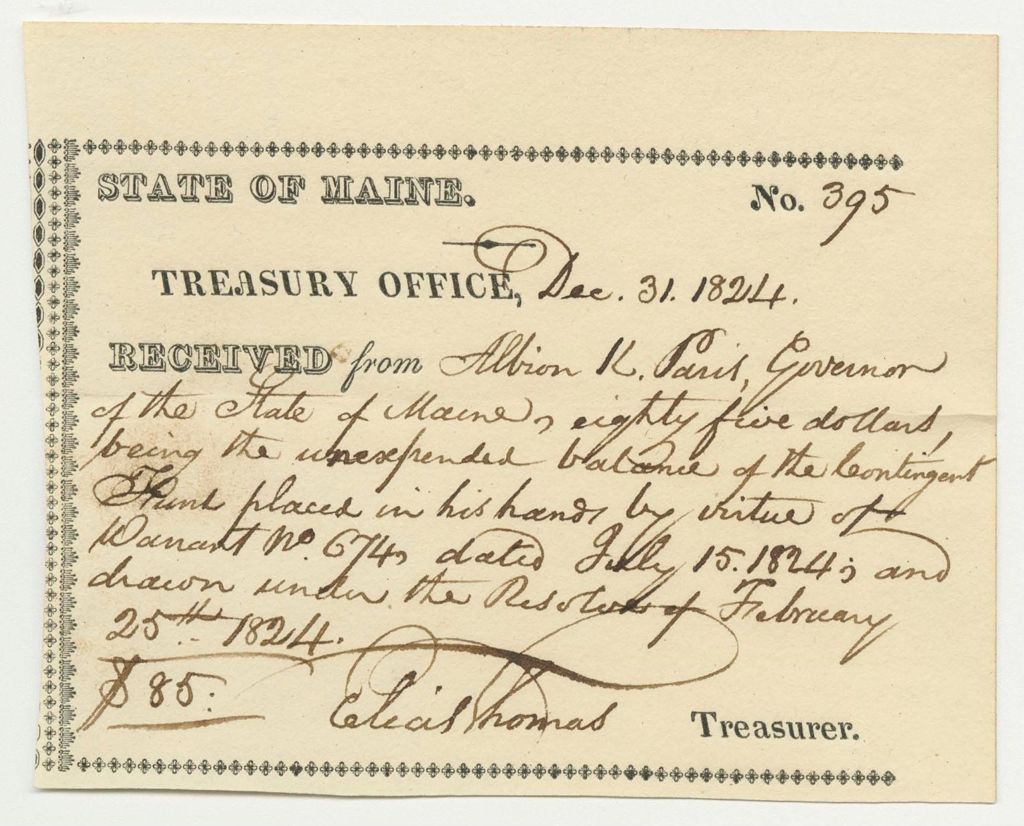 STATE OF MAINE.
No. 395
TREASURY OFFICE, Dec. 31. 1824.
RECEIVED from Albion K. Paris, Governor
of the State of Maine, eighty five dollars,
being the unexpended balance of the Contingent
Fund placed in his hands by virtue of
Warrant No. 674, dated July 15. 1824, and
drawn under the Resolve of February
25th 1824.
$85.
Elias Thomas Treasurer.